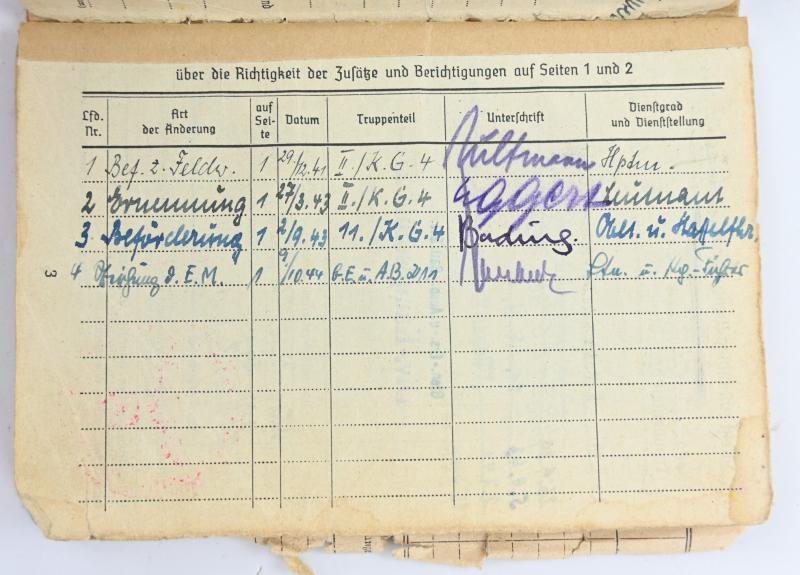 über die Richtigkeit der Zusätze und Berichtigungen auf Seiten 1 und 2
Lfd. Nr. Art der Änderung auf Sei- te Datum Truppenteil Unterschrift Dienstgrad und Dienststellung
1 Bef. z. Feldw. 1 29/12.41 II./K.G.4 Hptm.
2 Ernennung 1 27/3.43 II./K.G.4 Eggers Leutnant
3 Beförderung 1 2/9.43 11./K.G.4 Bading. Oblt. u. Staffelfhr.
4 d. E.M. 1 9/10.44 Ltn. u. Kp.-Führer
3